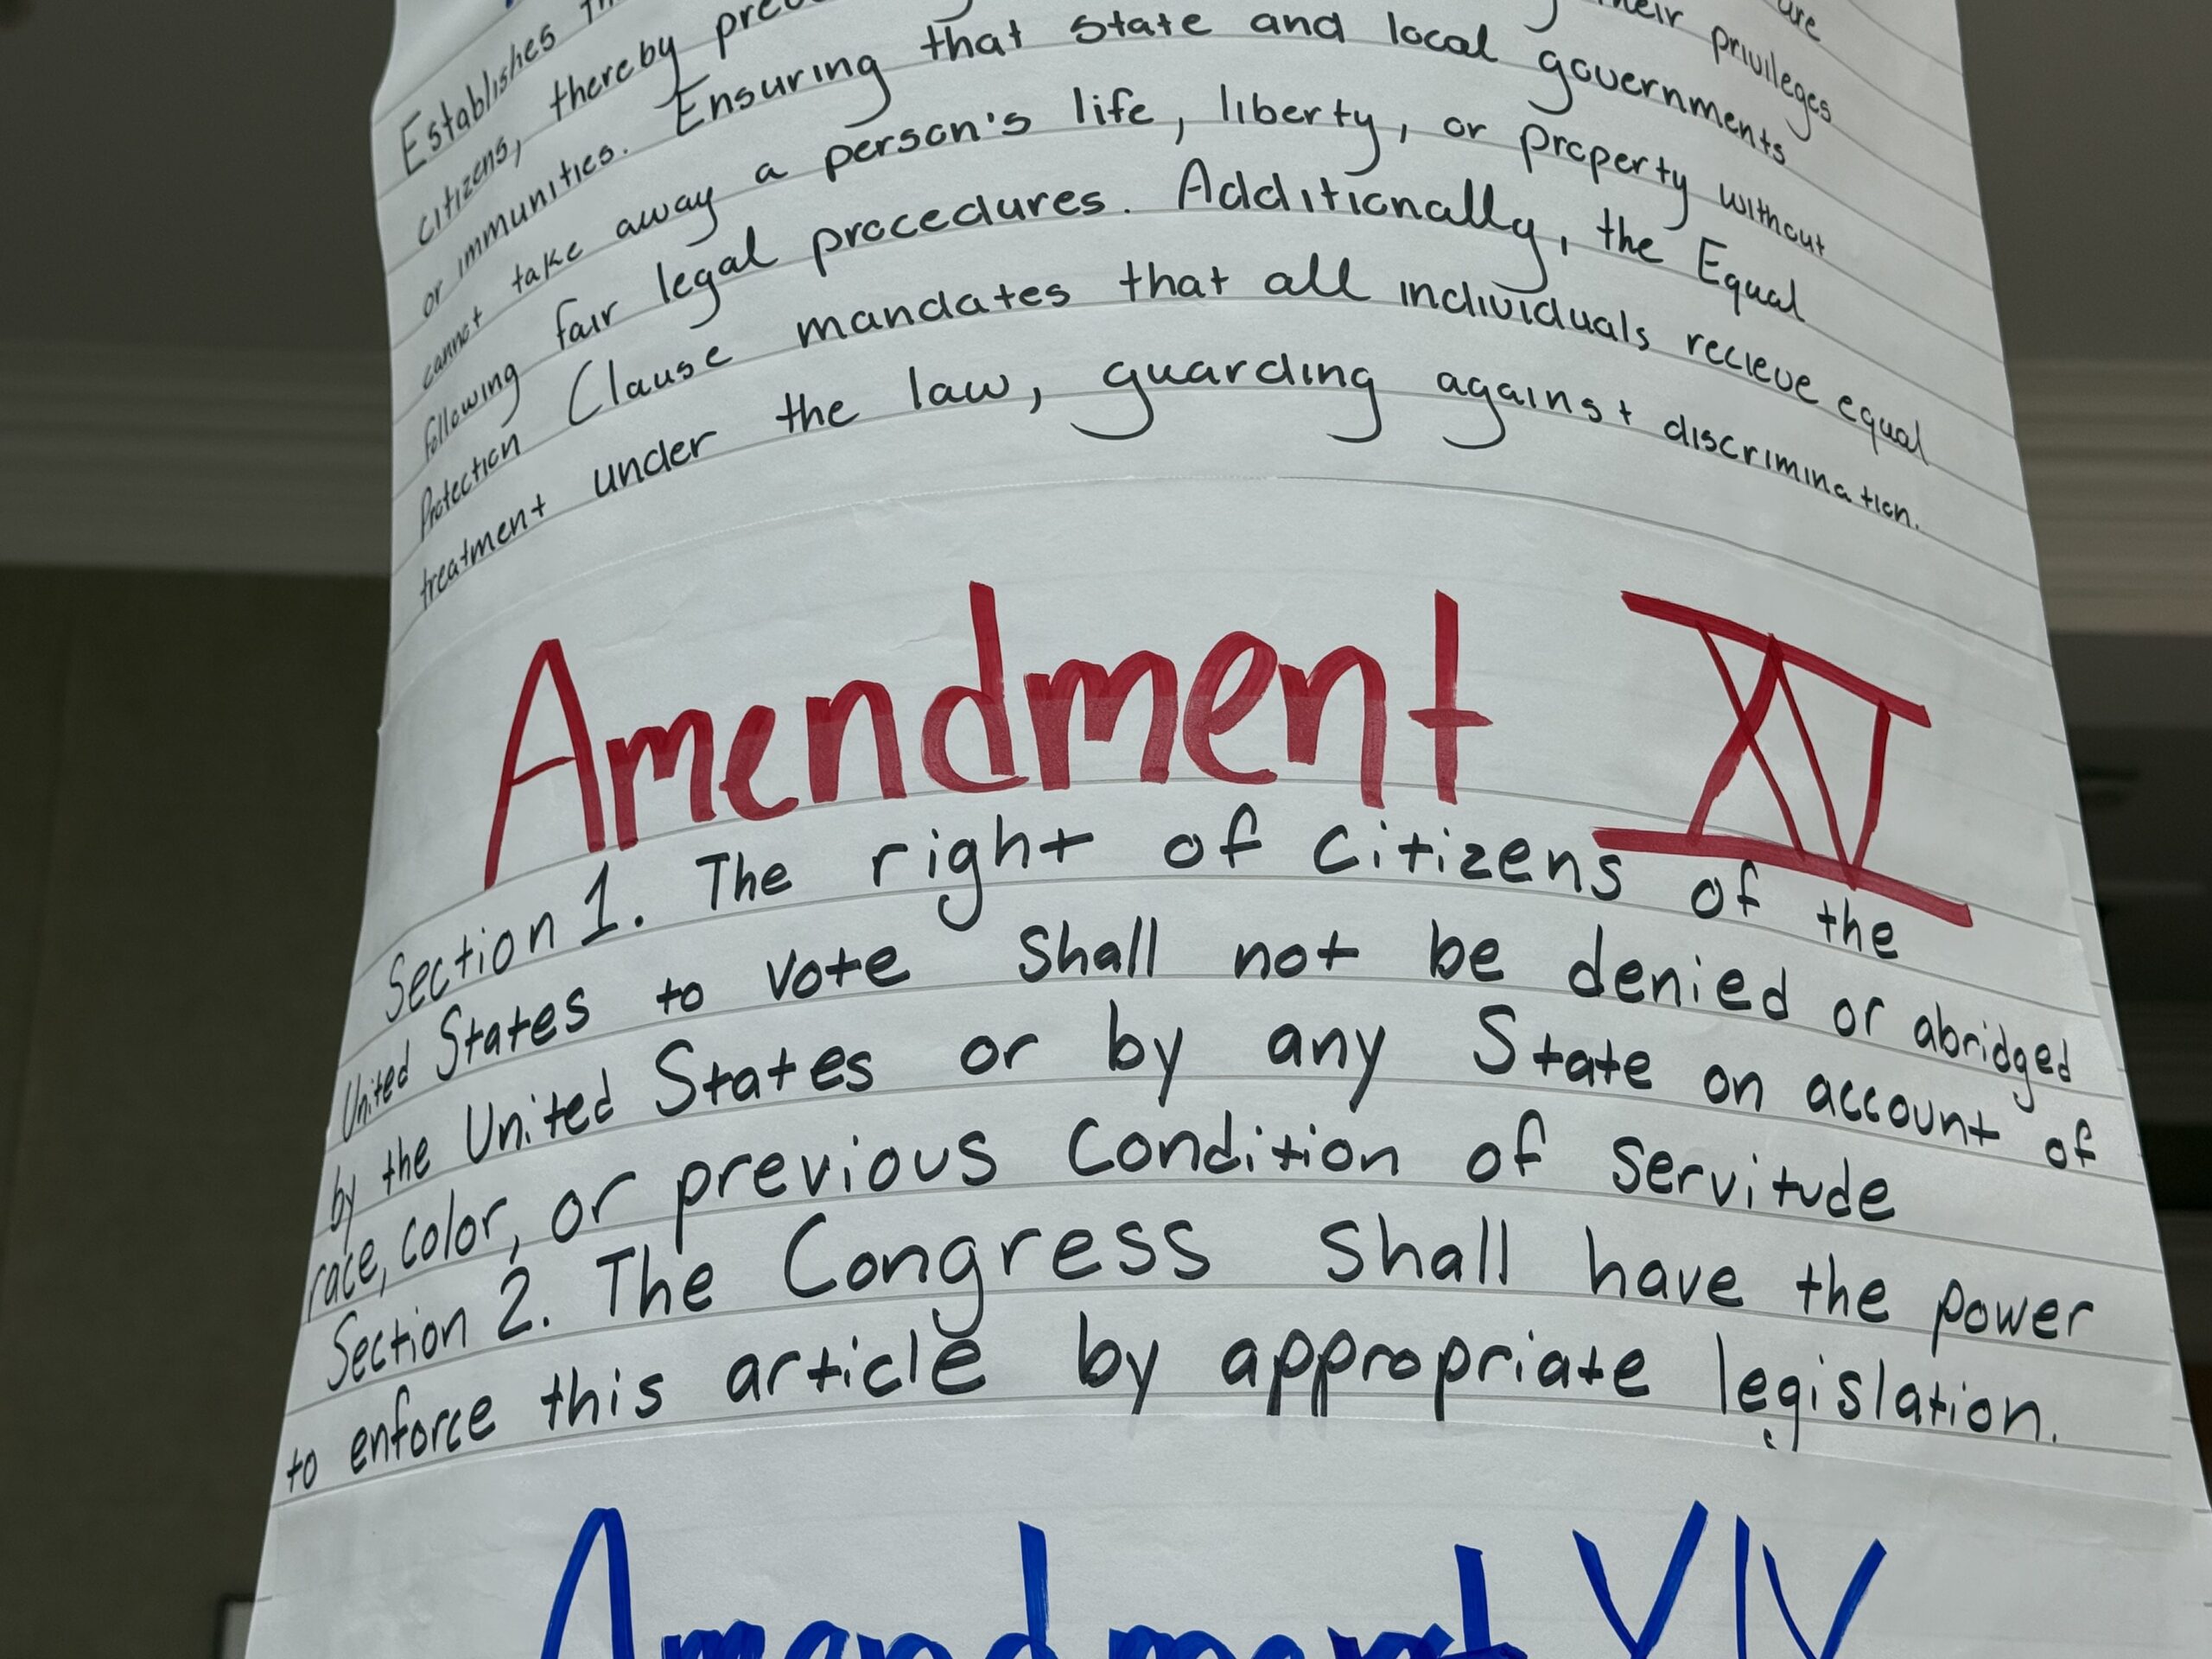 Establishes
citizens, thereby their privileges are
or immunities. Ensuring that state and local governments
cannot take away a person's life, liberty, or property without
following fair legal procedures. Additionally, the Equal
Protection Clause mandates that all individuals recieve equal
treatment under the law, guarding against discrimination.
Amendment XV
Section 1. The right of citizens of the
United States to vote shall not be denied or abridged
by the United States or by any State on account of
race, color, or previous condition of servitude
Section 2. The Congress shall have the power
to enforce this article by appropriate legislation.
Amendment XIV